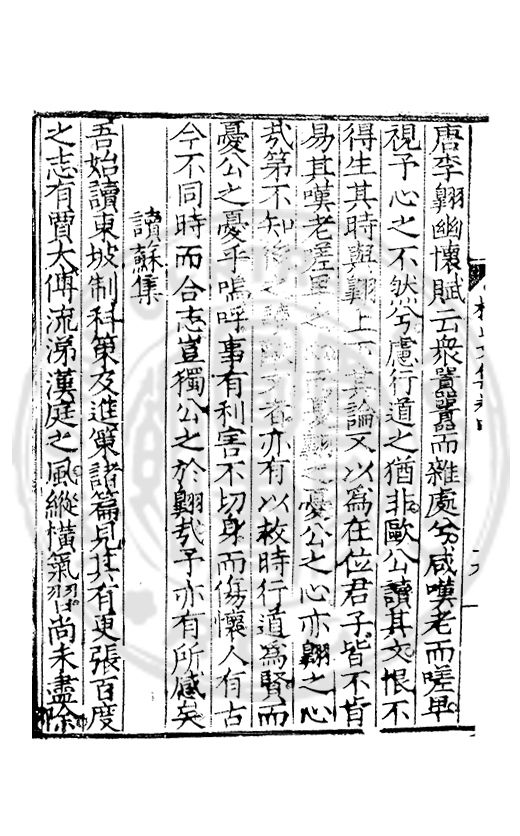 唐李翺幽懷賦云衆囂囂而雜處兮咸嘆老而嗟卑
視予心之不然兮慮行道之猶非歐公讀其文恨不
得生其時與翺上下其論又以為在位君子皆不肯
易其嘆老嗟卑之心為憂翺之憂公之心亦翺之心
㢤第不知後之讀者亦有以救時行道為賢而
憂公之憂乎嗚呼事有利害不切身而傷懷人有古
今不同時而合志豈獨公之於翺㢤予亦有所感矣
讀蘇集
吾始讀東坡制科策及進策諸篇見其有更張百度
之志有賈太傅流涕漢庭之風縱橫氣習尚未盡除